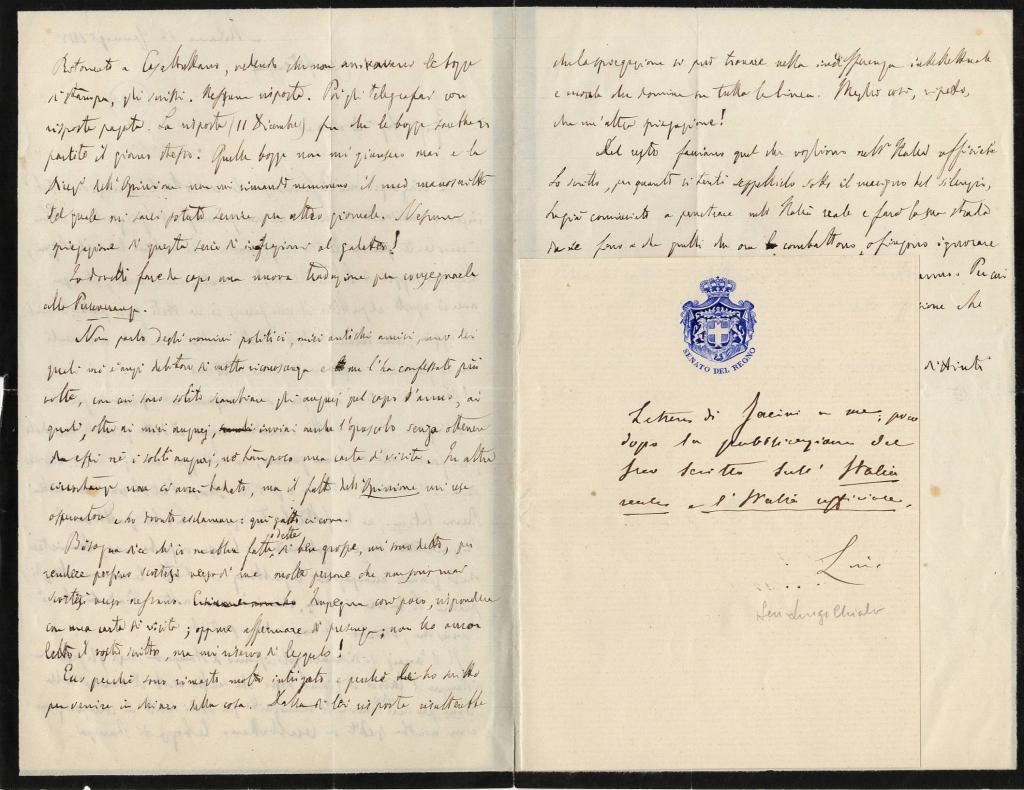 Ritornato a Casalbuttano, vedendo che non arrivavano le bozze
di stampa, gli scrissi. Nessuna risposta. Poi gli telegrafai con
risposta pagata. La risposta (11 Dicembre) fu che le bozze sarebbero
partite il giorno stesso. Quelle bozze non mi giunsero mai e la
dell'Opinione non mi rimandò nemmeno il mio manoscritto
del quale mi sarei potuto servire per altro giornale. Nessuna
spiegazione di questa serie di infrazioni al galateo!
Io dovetti fare da capo una nuova per consegnarla
alla Perseveranza.
Non parlo degli uomini politici, miei antichi amici, uno dei
quali mi è anzi debitore di molta riconoscenza e me l'ha confessato più
volte, con cui sono solito scambiare gli augurj pel capo d'anno, ai
quali, oltre ai miei augurj, inviai anche l'opuscolo senza ottenere
da essi nè i soliti augurj, nè tampoco una carta di visita. In altre
circostanze non ci avrei badato, ma il fatto dell'Opinione mi rese
osservatore e ho dovuto esclamare: qui gatta ci cova.
Bisogna dire ch'io ne abbia fatte, o dette, di ben grosse, mi sono detto, per
rendere perfino scortesi verso di me molte persone che non sono mai
scortesi verso nessuno. Impegna così poco, rispondere
con una carta di visita; oppure affermare di presenza: non ho ancor
letto il vostro scritto, ma mi riservo di leggerlo!
Ecco perchè sono rimasto molto intrigato e perchè Le ho scritto
per venire in chiaro della cosa. Dalla di Lei risposta risulterebbe
che la spiegazione si può trovare nella indifferenza intellettuale
e morale che domina su tutta la linea. Meglio così, ripeto,
che un'altra spiegazione!
Del resto facciano quel che vogliono nell'Italia ufficiale
Lo scritto, per quanto si tenti seppellirlo sotto il macigno del silenzio,
ha già cominciato a penetrare nell'Italia reale e farà la sua strada
da se fino a che quelli che ora lo combattono, o fingono ignorare
Per cui
che
distinti
SENATO DEL REGNO
Lettera di Jacini a me, poco
dopo la pubblicazione del
suo scritto sull' Italia
reale e l'Italia ufficiale.
Sen Luigi Chiala